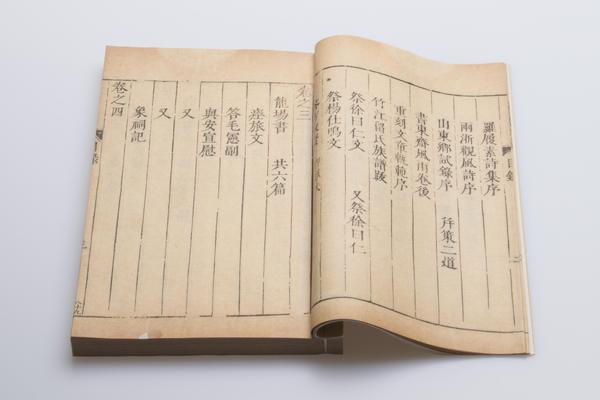 目錄
羅履素詩集序
兩浙觀風詩序
山東鄉試錄序 幷策二道
書東齋風雨卷後
重刻文章軌範序
竹江劉氏族譜跋
祭徐曰仁文 又祭徐曰仁
祭楊仕鳴文
卷之三
龍場書 共六篇
瘞旅文
答毛憲副
與安宣慰
又
又
象祠記
卷之四
目錄